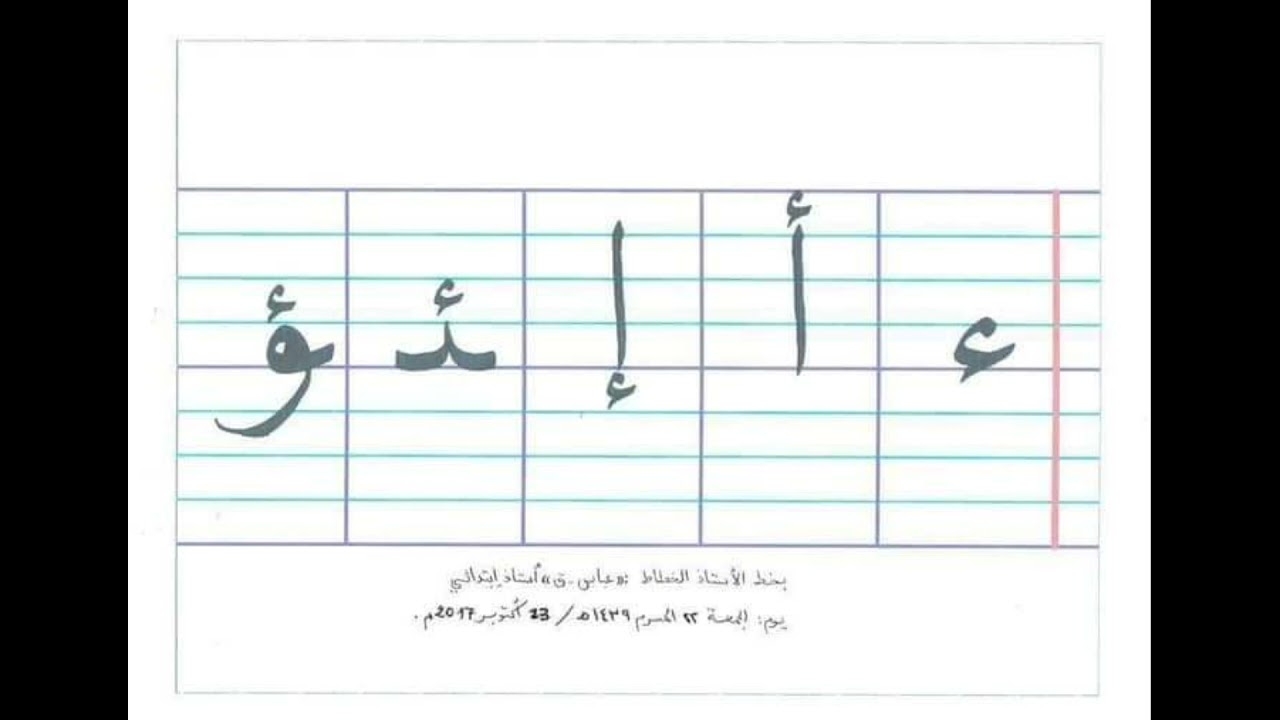 ء أ إ ئـ ؤ
بخط الأستاذ الخطاط : «عباس .ق» أستاذ إبتدائي
يوم: الجمعة ٢٢ المحرم ١٤٣٩هـ / 13 أكتوبر 2017م.